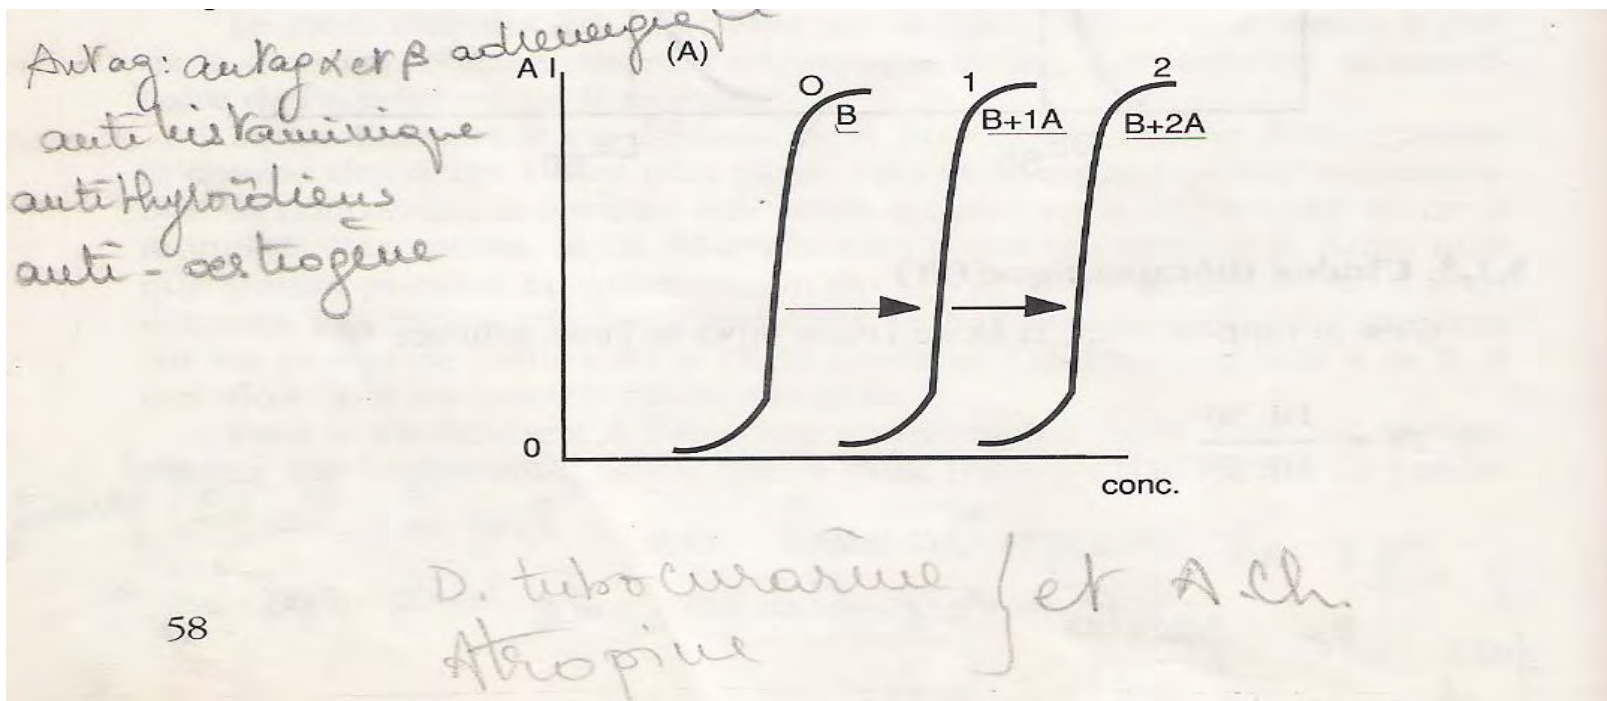 Antag: antag α et β adrénergique
antihistaminique
antithyroïdiens
anti-œstrogène
A I
(A)
0
1
2
B
B+1A
B+2A
0
conc.
D. tubocurarine } et A.Ch.
Atropine
58